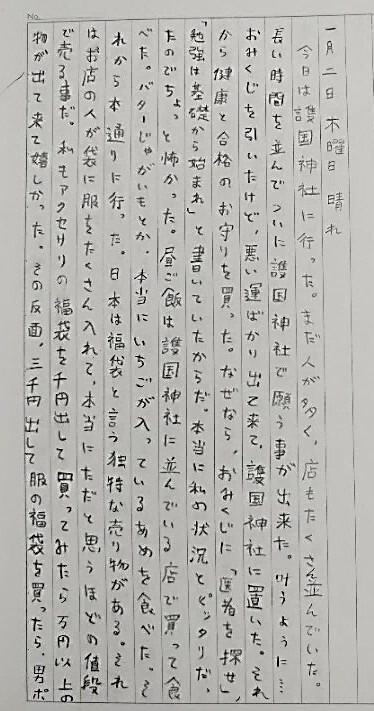 No.
一月二日 木曜日 晴れ
今日は護国神社に行った。まだ人が多く、店もたくさん並んでいた。
長い時間を並んでついに護国神社で願う事が出来た。叶うように…
おみくじを引いたけど、悪い運ばかり出て来て、護国神社に置いた。それ
から健康と合格のお守りを買った。なぜなら、おみくじに「医者を探せ」、
「勉強は基礎から始まれ」と書いていたからだ。本当に私の状況とピッタリだ
たのでちょっと怖かった。昼ご飯は護国神社に並んでいる店で買って食
べた。バターじゃがいもとか、本当にいちごが入っているあめを食べた。そ
れから本通りに行った。日本は福袋と言う独特な売り物がある。それ
はお店の人が袋に服をたくさん入れて、本当にただと思うほどの値段
で売る事だ。私もアクセサリの福袋を千円出して買ってみたら万円以上の
物が出て来て嬉しかった。その反面、三千円出して服の福袋を買ったら、男ポ